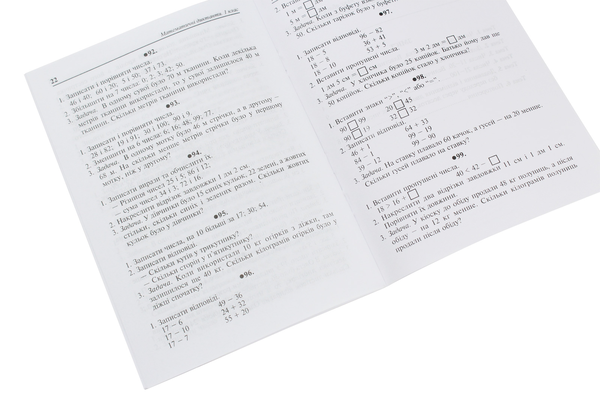 22
Математичні диктанти. 3 клас
●92.
1. Записати і порівняти числа.
46 і 40; 60 і 29; 5 і 50; 37 і 73.
2. Збільшити на 7 числа: 0; 2; 3; 42; 50.
3. Задача. В одному сувої було 70 м тканини. Коли декілька
метрів тканини використали, то в сувої залишилося 40 м
тканини. Скільки метрів тканини використали?
●93.
1. Записати і порівняти числа.
28 і 82; 19 і 91; 30 і 100; 90 і 9.
2. Зменшити на 6 числа: 6; 16; 48; 99; 77.
3. Задача. В одному мотку було 46 м стрічки, а в другому —
68 м. На скільки менше метрів стрічки було у першому
мотку, ніж у другому?
●94.
1. Записати вирази та обчислити їх.
— Різниця чисел 25 і 5; 86 і 12.
— сума чисел 34 і 3; 72 і 16.
2. Накреслити відрізок завдовжки 1 дм 2 см.
3. Задача. У дівчинки було 15 синіх кульок, 22 зелені, а жовтих
стільки, скільки синіх і зелених разом. Скільки жовтих
кульок було у дівчинки?
●95.
1. Записати числа, на 10 більші за 17; 30; 54.
2. Записати відповіді.
— Скільки кутів у трикутнику?
— Скільки сторін у п'ятикутнику?
3. Задача. Коли використали 10 кг огірків з діжки, там
залишилося ще 40 кг. Скільки кілограмів огірків було у
діжці спочатку?
●96.
1. Записати відповіді.
17 – 6 49 – 36
17 – 10 24 + 32
17 – 7 55 + 20
1 м
5 м дм
3. Задача. Коли з буфету
50. Скільки тарілок було у буфеті
●97.
1. Записати відповіді.
18 – 5 96 – 82
18 – 8 36 + 41
18 – 10 53 + 5
2. Вставити пропущені числа.
1 дм 5 см = см 3 м 2 дм = дм
3. Задача. У хлопчика було 25 копійок. Батько йому дав ще
50 копійок. Скільки копійок стало у хлопчика?
●98.
1. Вставити знаки «>», «<» або «=».
90 09 20 45
90 19 32 32
2. Записати відповіді.
46 + 1 64 + 33
84 – 2 99 – 19
39 – 12 99 – 90
3. Задача. На ставку плавало 60 качок, а гусей — на 20 менше.
Скільки гусей плавало на ставку?
●99.
1. Вставити пропущені числа.
18 > 16 + 40 < 42 –
2. Накреслити два відрізки завдовжки 11 см і 1 дм 1 см.
Порівняти їх довжини.
3. Задача. У кіоску до обіду продали 48 кг полуниць, а після
обіду — на 12 кг менше. Скільки кілограмів полуниць
продали після обіду?